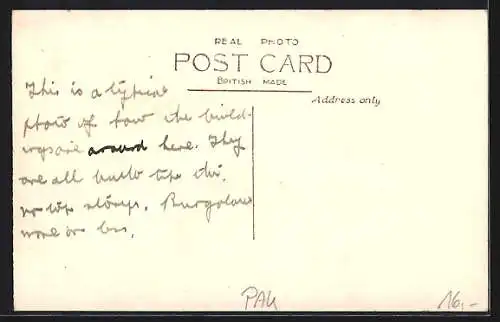 REAL PHOTO
POST CARD
BRITISH MADE
Address only
This is a typical
photo of how the build-
ings are around here. They
are all built up the
or up slopes. Bungalows
more or less.
PAK
16,-